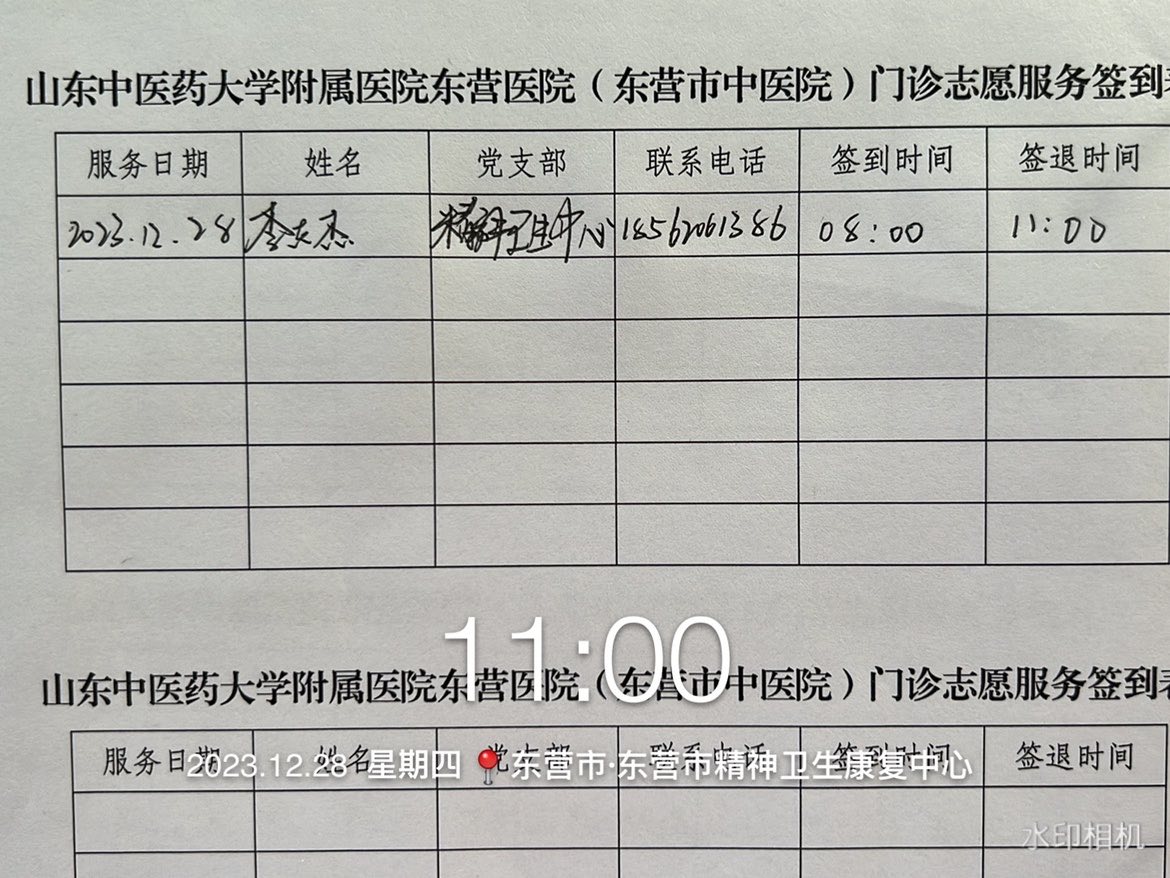 山东中医药大学附属医院东营医院（东营市中医院）门诊志愿服务签到表
服务日期 姓名 党支部 联系电话 签到时间 签退时间
2023.12.28 李 杰 卫生中心 18562061386 08:00 11:00
11:00
山东中医药大学附属医院东营医院（东营市中医院）门诊志愿服务签到表
服务日期 姓名 党支部 联系电话 签到时间 签退时间
2023.12.28 星期四 东营市·东营市精神卫生康复中心
水印相机